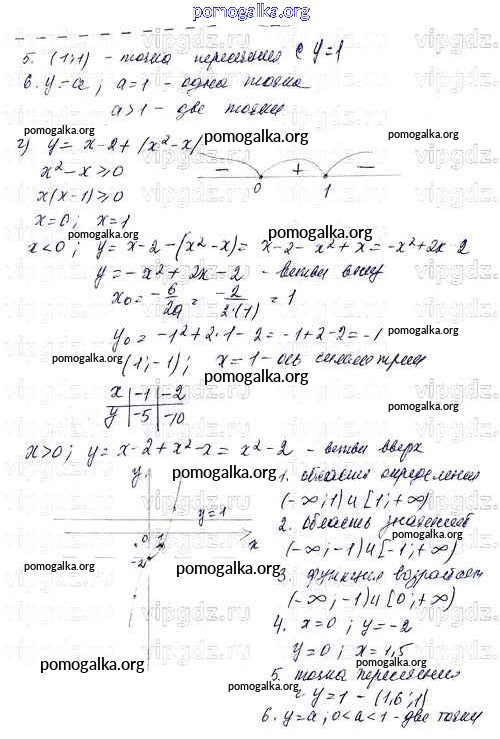 pomogalka.org
5. (1;1) - точка пересечения с y=1
6. y=a; a=1 - одна точка
a>1 - две точки
pomogalka.org pomogalka.org
г) y = x-2+|x²-x|
x²-x≥0
x(x-1)≥0
x=0; x=1
- + -
0 1
pomogalka.org pomogalka.org
x<0; y=x-2-(x²-x)= x-2-x²+x=-x²+2x-2
y=-x²+2x-2 - ветви вниз
x₀=-б/2a=-2/2·(1)=1
pomogalka.org pomogalka.org
y₀=-1²+2·1-2=-1+2-2=-1
(1;-1); x=1-ось симметрии
pomogalka.org
x -1 -2
y -5 -10
pomogalka.org
x>0; y=x-2+x²-x=x²-2 - ветви вверх
pomogalka.org pomogalka.org
y
y=1
0 1 x
-2
1. область определения
(-∞;1)и[1;+∞)
2. область значений
(-∞;-1)и[-1;+∞)
pomogalka.org pomogalka.org
3. функция возрастает
(-∞;-1)и[0;+∞)
4. x=0; y=-2
y=0; x=1,5
pomogalka.org pomogalka.org
5. точка пересечения
с y=1 - (1,6;1)
6. y=a; 0<a<1-две точки
pomogalka.org pomogalka.org
vipgdz.ru